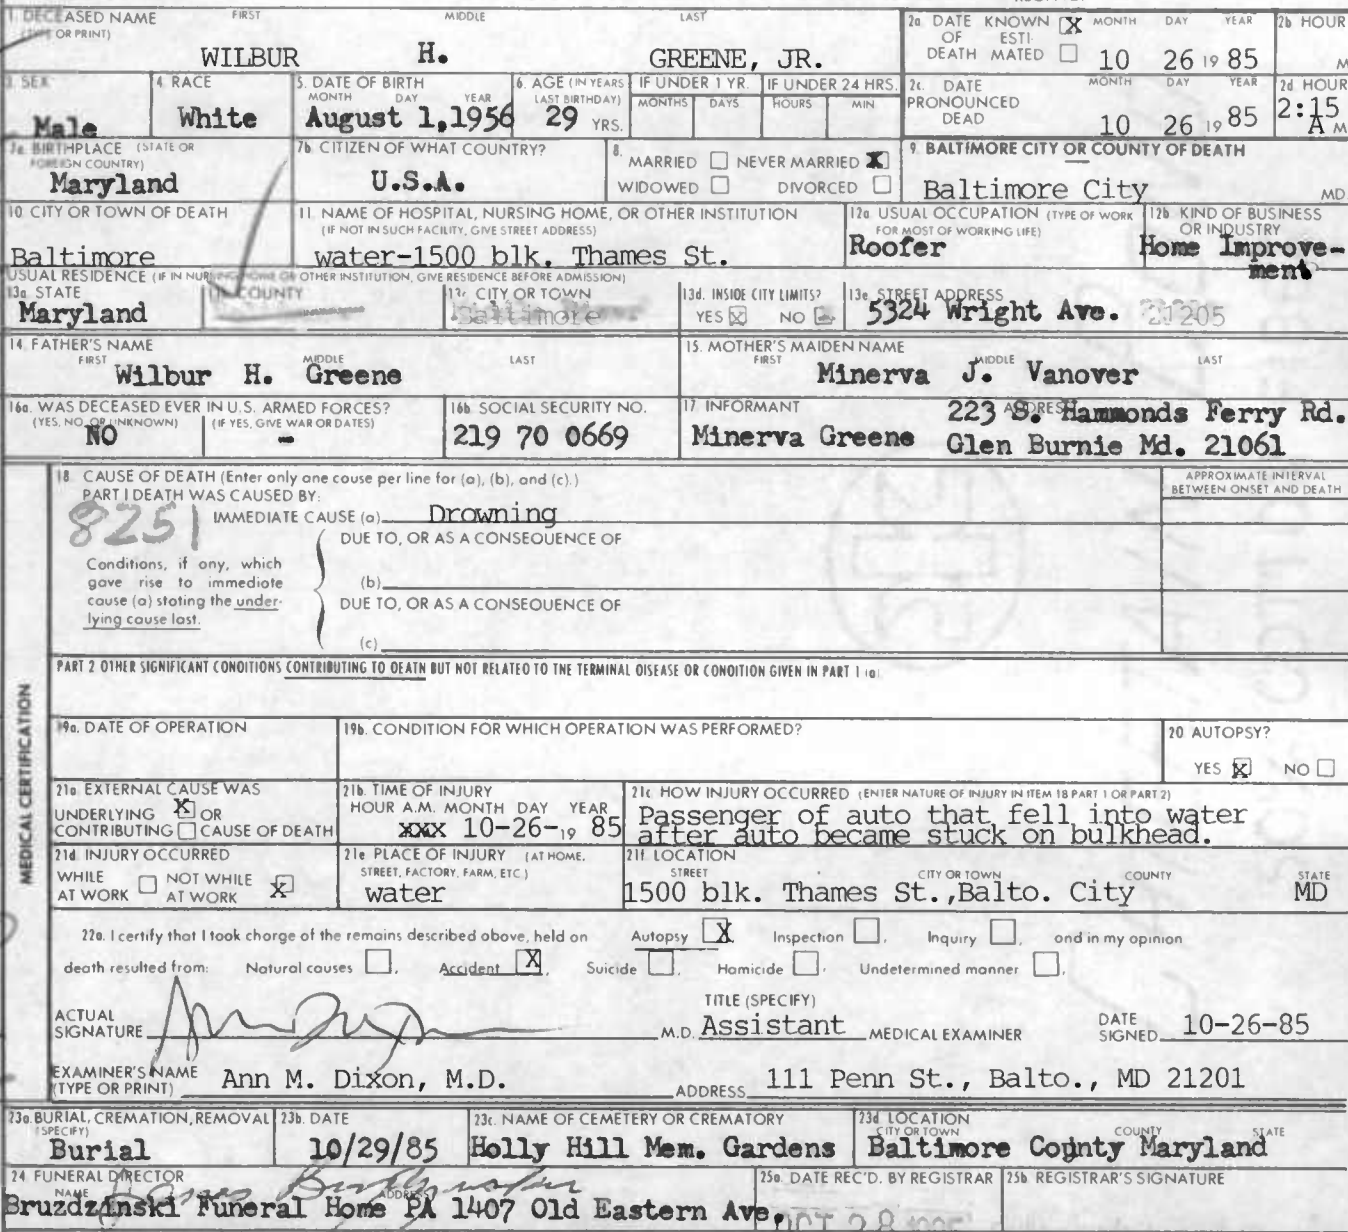 1. DECEASED NAME FIRST MIDDLE LAST
(TYPE OR PRINT)
WILBUR H. GREENE, JR.
2a. DATE KNOWN X MONTH DAY YEAR 2b HOUR
OF ESTI-
DEATH MATED 10 26 19 85 M
3. SEX 4. RACE 5. DATE OF BIRTH 6. AGE (IN YEARS IF UNDER 1 YR. IF UNDER 24 HRS.
MONTH DAY YEAR LAST BIRTHDAY) MONTHS DAYS HOURS MIN.
Male White August 1,1956 29 YRS.
2c. DATE MONTH DAY YEAR 2d HOUR
PRONOUNCED
DEAD 10 26 19 85 2:15 A M
7a. BIRTHPLACE (STATE OR
FOREIGN COUNTRY)
Maryland
7b. CITIZEN OF WHAT COUNTRY?
U.S.A.
8. MARRIED NEVER MARRIED X
WIDOWED DIVORCED
9. BALTIMORE CITY OR COUNTY OF DEATH
Baltimore City MD
10. CITY OR TOWN OF DEATH
Baltimore
11. NAME OF HOSPITAL, NURSING HOME, OR OTHER INSTITUTION
(IF NOT IN SUCH FACILITY, GIVE STREET ADDRESS)
water-1500 blk. Thames St.
12a. USUAL OCCUPATION (TYPE OF WORK
FOR MOST OF WORKING LIFE)
Roofer
12b. KIND OF BUSINESS
OR INDUSTRY
Home Improve-
ment
USUAL RESIDENCE (IF IN NURSING HOME OR OTHER INSTITUTION, GIVE RESIDENCE BEFORE ADMISSION)
13a. STATE COUNTY 13c. CITY OR TOWN 13d. INSIDE CITY LIMITS? 13e. STREET ADDRESS
Maryland Baltimore YES X NO 5324 Wright Ave. 21205
14. FATHER'S NAME
FIRST MIDDLE LAST
Wilbur H. Greene
15. MOTHER'S MAIDEN NAME
FIRST MIDDLE LAST
Minerva J. Vanover
16a. WAS DECEASED EVER IN U.S. ARMED FORCES?
(YES, NO, OR UNKNOWN) (IF YES, GIVE WAR OR DATES)
NO -
16b. SOCIAL SECURITY NO.
219 70 0669
17. INFORMANT ADDRESS
Minerva Greene
223 S. Hammonds Ferry Rd.
Glen Burnie Md. 21061
MEDICAL CERTIFICATION
18. CAUSE OF DEATH (Enter only one cause per line for (a), (b), and (c).)
PART I DEATH WAS CAUSED BY:
APPROXIMATE INTERVAL
BETWEEN ONSET AND DEATH
8251
IMMEDIATE CAUSE (a) Drowning
DUE TO, OR AS A CONSEQUENCE OF
Conditions, if any, which
gave rise to immediate
cause (a) stating the under-
lying cause last.
(b)
DUE TO, OR AS A CONSEQUENCE OF
(c)
PART 2 OTHER SIGNIFICANT CONDITIONS CONTRIBUTING TO DEATH BUT NOT RELATED TO THE TERMINAL DISEASE OR CONDITION GIVEN IN PART 1 (a)
19a. DATE OF OPERATION 19b. CONDITION FOR WHICH OPERATION WAS PERFORMED? 20. AUTOPSY?
YES X NO
21a. EXTERNAL CAUSE WAS
UNDERLYING X OR
CONTRIBUTING CAUSE OF DEATH
21b. TIME OF INJURY
HOUR A.M. MONTH DAY YEAR
xxx 10-26-19 85
21c. HOW INJURY OCCURRED (ENTER NATURE OF INJURY IN ITEM 18 PART 1 OR PART 2)
Passenger of auto that fell into water
after auto became stuck on bulkhead.
21d. INJURY OCCURRED
WHILE NOT WHILE
AT WORK AT WORK X
21e. PLACE OF INJURY (AT HOME,
STREET, FACTORY, FARM, ETC.)
water
21f. LOCATION
STREET CITY OR TOWN COUNTY STATE
1500 blk. Thames St.,Balto. City MD
22a. I certify that I took charge of the remains described above, held on Autopsy X Inspection , Inquiry , and in my opinion
death resulted from: Natural causes , Accident X Suicide , Homicide , Undetermined manner ,
ACTUAL
SIGNATURE
TITLE (SPECIFY)
M.D. Assistant MEDICAL EXAMINER
DATE
SIGNED 10-26-85
EXAMINER'S NAME
(TYPE OR PRINT) Ann M. Dixon, M.D.
ADDRESS 111 Penn St., Balto., MD 21201
23a. BURIAL, CREMATION, REMOVAL 23b. DATE 23c. NAME OF CEMETERY OR CREMATORY 23d. LOCATION
(SPECIFY) CITY OR TOWN COUNTY STATE
Burial 10/29/85 Holly Hill Mem. Gardens Baltimore County Maryland
24. FUNERAL DIRECTOR
NAME ADDRESS
Bruzdzinski Funeral Home PA 1407 Old Eastern Ave.
25a. DATE REC'D. BY REGISTRAR 25b. REGISTRAR'S SIGNATURE
OCT 28 1985